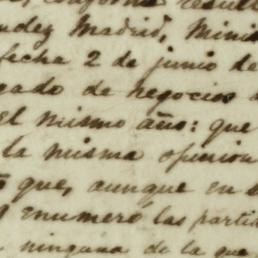 conforme result
ndez Madrid, Minis
fecha 2 de junio de
gado de negocios
el mismo año: que
la misma opinion
que, aunque en
enumeró las partid
ninguna de la que